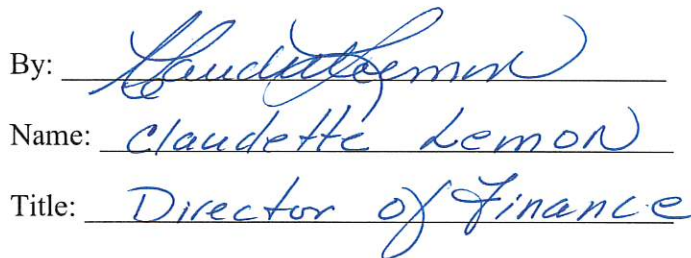 By: Claudette Lemon
Name: Claudette Lemon
Title: Director of Finance